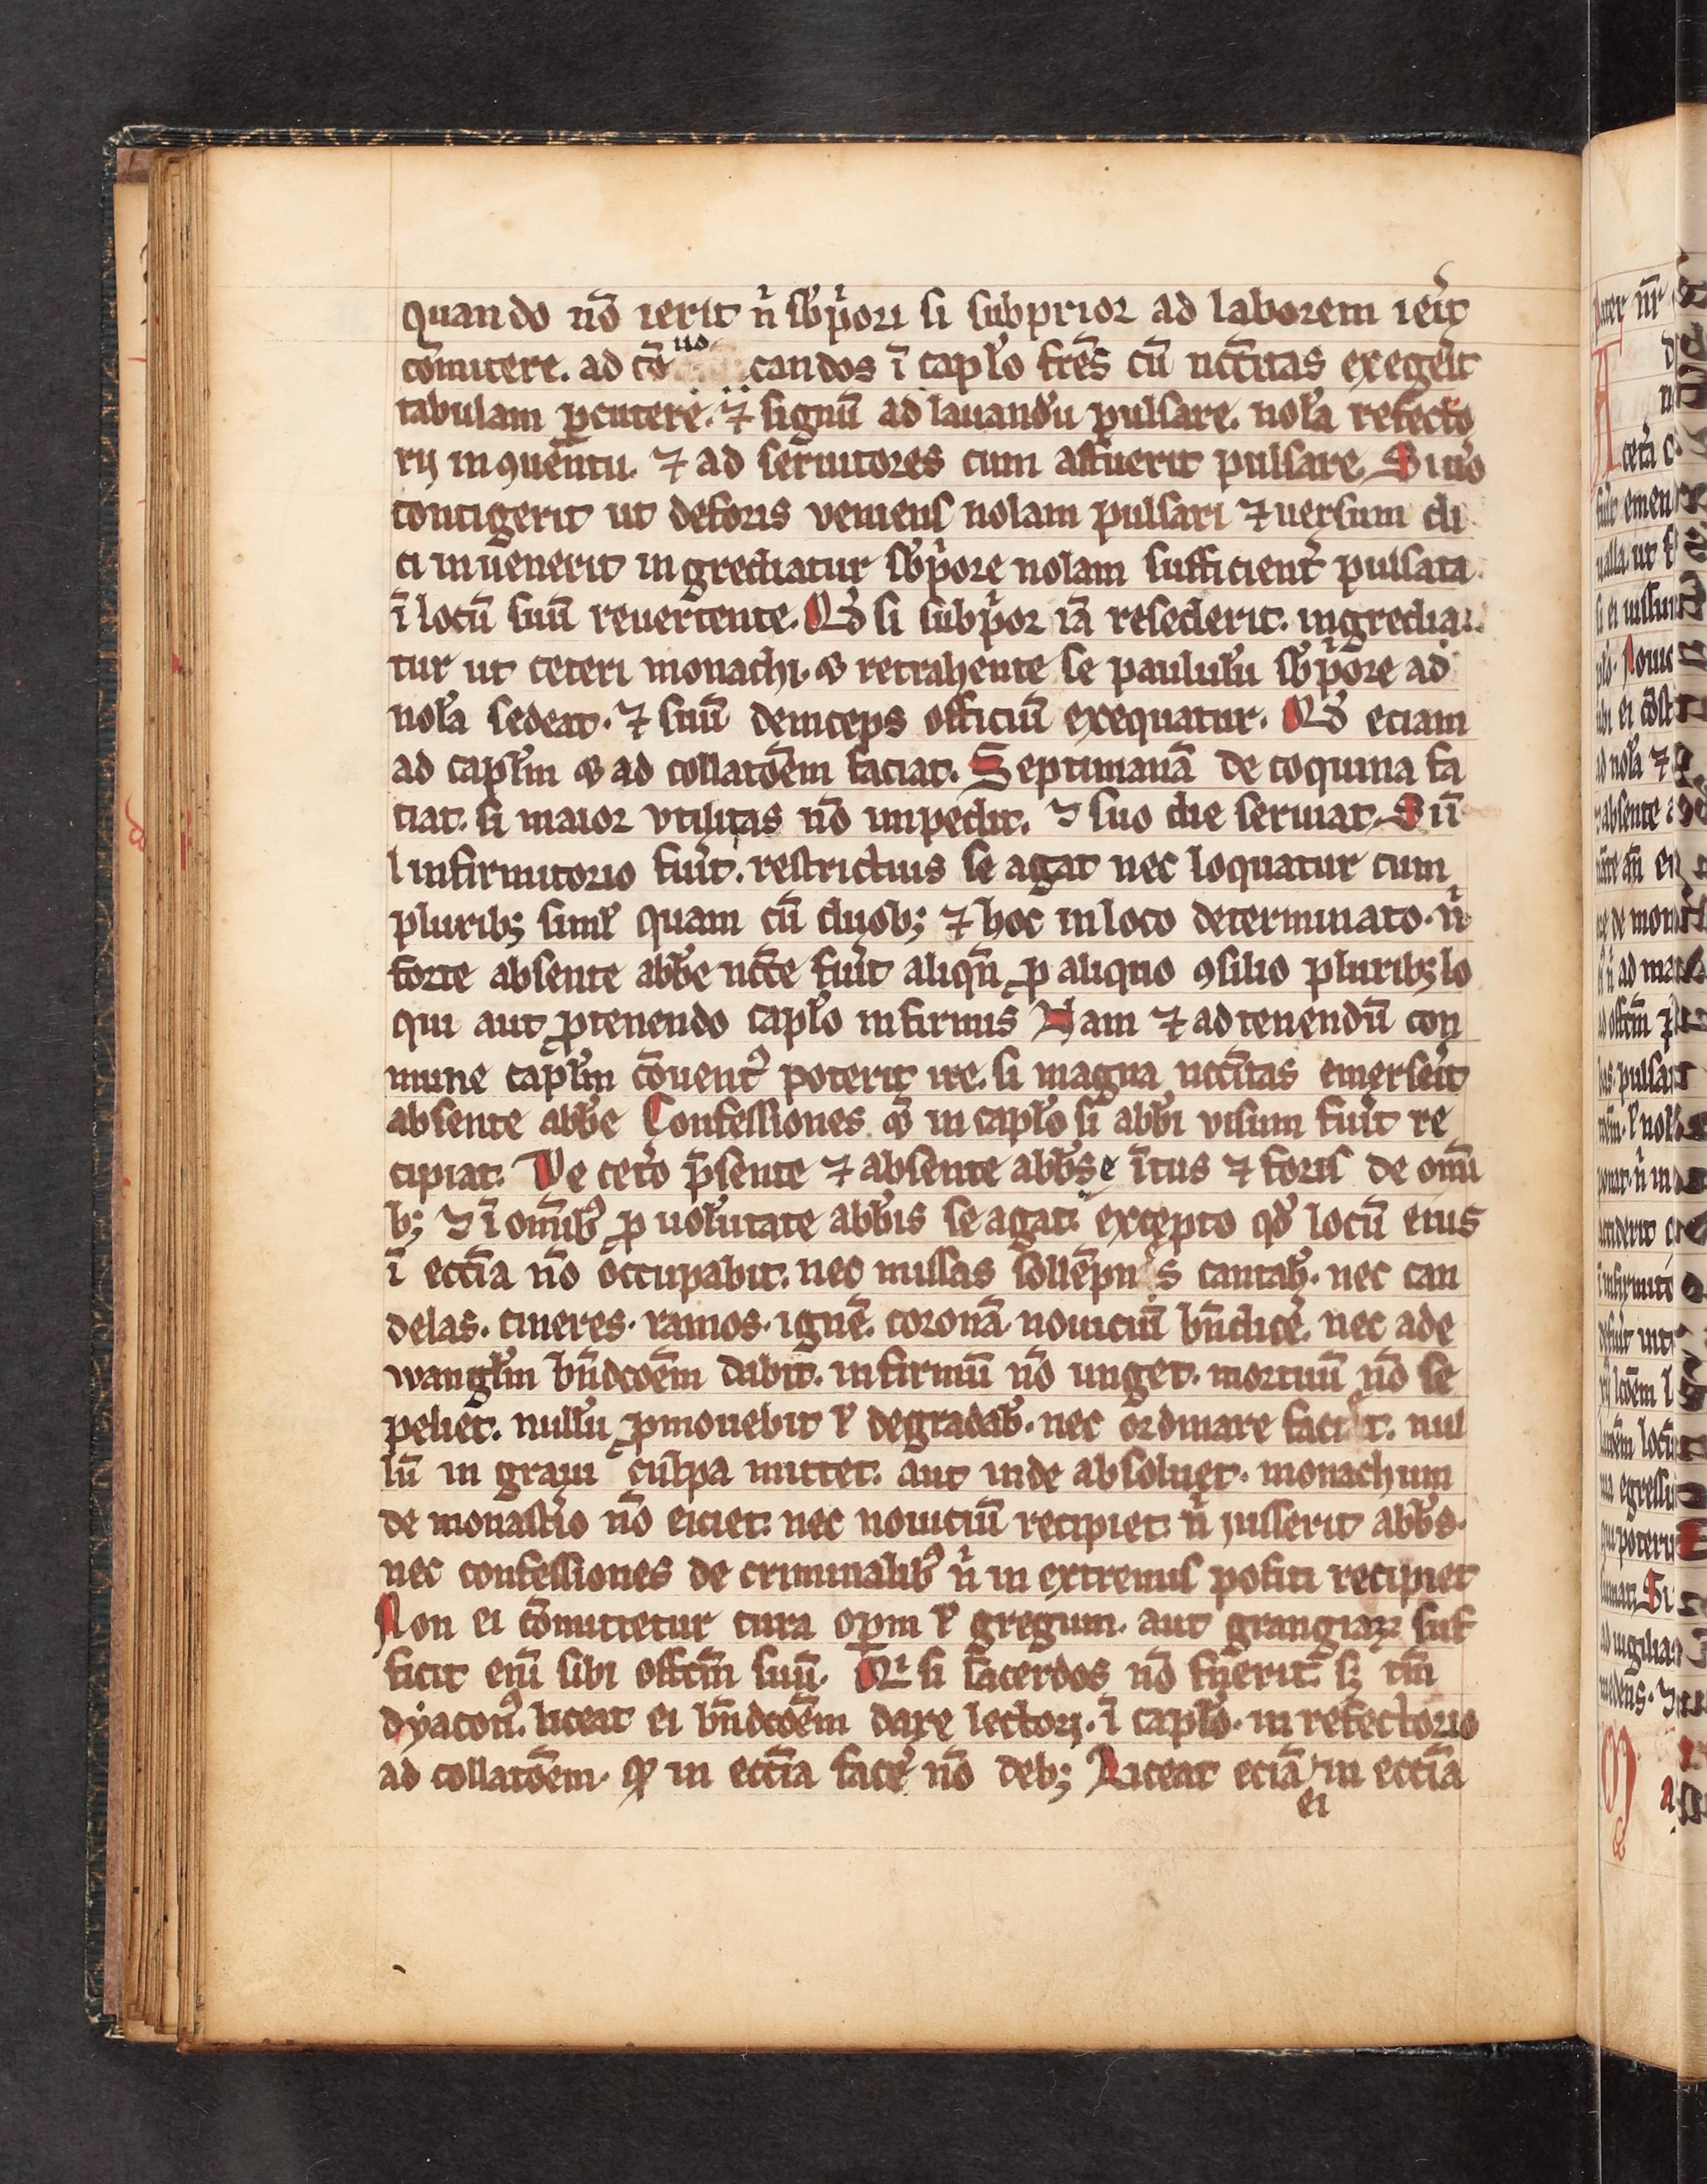 quando nō ierit n̄ sb̄pͥori si subprior ad laborem ieīt
cōmitere. ad cōuocandos ī capl̄o fr̄es cū nc̄c̄itas exegēit
tabulam ꝑcutere. ⁊ signū ad lauandū pulsare. nol̄a refecto
rij in ꝯuentu. ⁊ ad seruitores cum affuerit pulsare. Si uͦo
contigerit ut deforis veniens nolam pulsari ⁊ uersum di
ci inuenerit ingrediatur sb̄pͥore nolam sufficient͛ pulsata
ī locū suū reuertente. Qd̄ si subpͥor iā resederit. ingredia
tur ut ceteri monachi. ꝙ retrahente se paululū sb̄pͥore ad
nol̄a sedeat. ⁊ suū deinceps officiū exequatur. Qd̄ eciam
ad capl̄m ꝙ ad collatōem faciat. Septimanā de coquina fa
ciat. si maior vtilitas nō impedit. ⁊ suo die seruiat. Dū
ī infirmitorio fuīt. restrictius se agat nec loquatur cum
pluribꝫ siml̄ quam cū duobꝫ ⁊ hoc in loco determinato. nͥ
forte absente abb̄e nc̄c̄e fuīt aliqn̄ ꝓ aliquo ꝯsilio pluribꝫ lo
qui aut ꝓ tenendo capl̄o infirmis Nam ⁊ ad tenendū com
mune capl̄m cōuentꝰ poterit ire. si magna nc̄c̄itas emerserīt
absente abb̄e Confessiones ꝙ in capl̄o si abb̄i visum fuīt re
cipiat. De cetō p̄sente ⁊ absente abb̄e ītus ⁊ foris de om̄i
bꝫ ⁊ ī om̄ibꝰ ꝓ uolūtate abb̄is se agat. excepto qd̄ locū eius
ī eccīa nō occupabit. nec missas sollēpnes cantab̄. nec can
delas. cineres. ramos. ignē. coronā. nouiciū bn̄dicet. nec ad e
wangl̄m bn̄dc̄oēm dabit. infirmū nō unget. mortuū nō se
peliet. nullū ꝓmouebit ł degradab̄. nec ordinare faciet. nul
lū in graui culpa mittet. aut inde absoluet. monachum
de monast̄io nō eiciet. nec nouiciū recipiet. nͥ iusserit abb̄s.
nec confessiones de criminalibꝰ nͥ in extremis positi recipiet
Non ei cōmittetur cura oꝑm ł gregum. aut grangiaꝝ suf
ficit eni͛ sibi offm̄ suū. Qͥ si sacerdos nō fuerit sꝫ tm̄
dyaconꝰ. liceat ei bn̄dc̄oēm dare lectori. ī capl̄o. in refectorio
ad collatōem. qͩ in eccīa facē nō debꝫ Liceat eciā in eccīa
ei